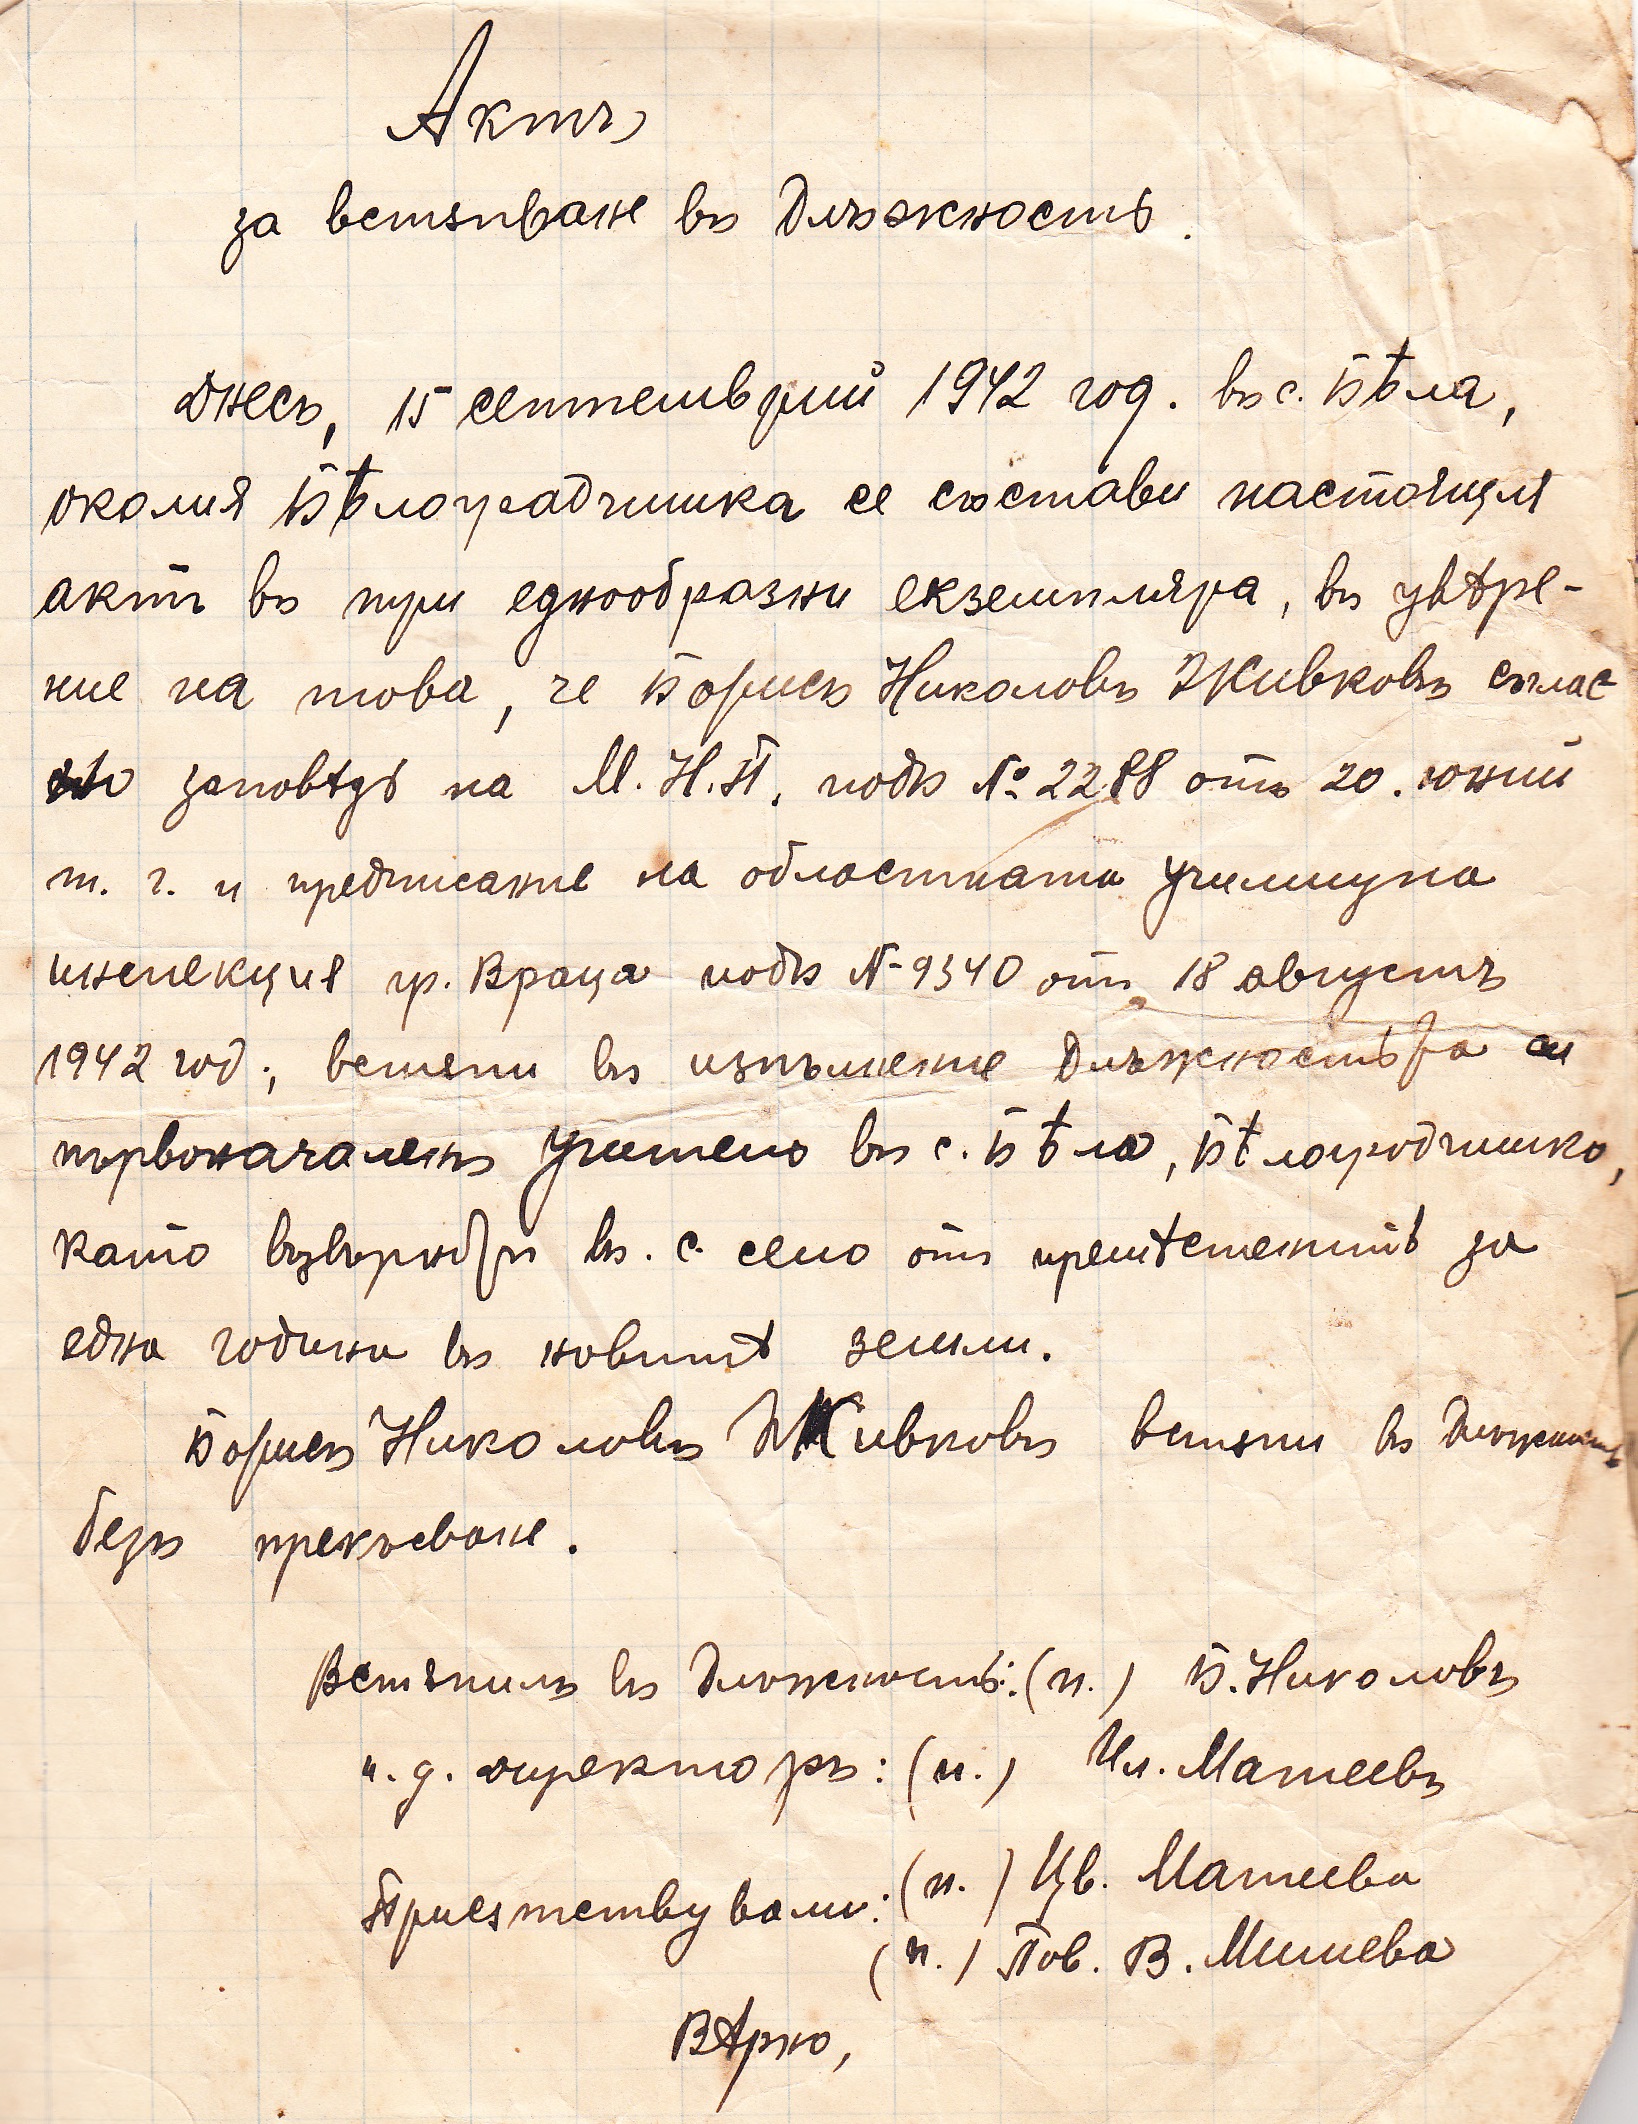 Актъ
за встѫпване въ Длъжность.
Днесъ, 15 септемврий 1942 год. въ с. Бѣла,
околия Бѣлоградчишка се състави настоящия
актъ въ три еднообразни екземпляра, въ увѣре-
ние на това, че Борисъ Николовъ Живковъ съглас
но заповѣдь на М.Н.П. подъ № 2288 отъ 20. юний
т. г. и предписание на областната училищна
инспекция гр. Враца подъ № 9340 отъ 18 августъ
1942 год., встѫпи въ изпълнение Длъжностьта си
първоначаленъ учитель въ с. Бѣла, Бѣлоградчишко,
като възвърнатъ въ. с. село отъ премѣстенитѣ за
една година въ новитѣ земи.
Борисъ Николовъ Живковъ встѫпи въ Длъжность
безъ прекѫсване.
Встѫпилъ въ Длъжность: (п.) Б. Николовъ
и. д. директоръ: (п.) Ил. Матеевъ
Присѫтствували: (п.) Цв. Матеева
(п.) Пов. В. Мишева
Вѣрно,